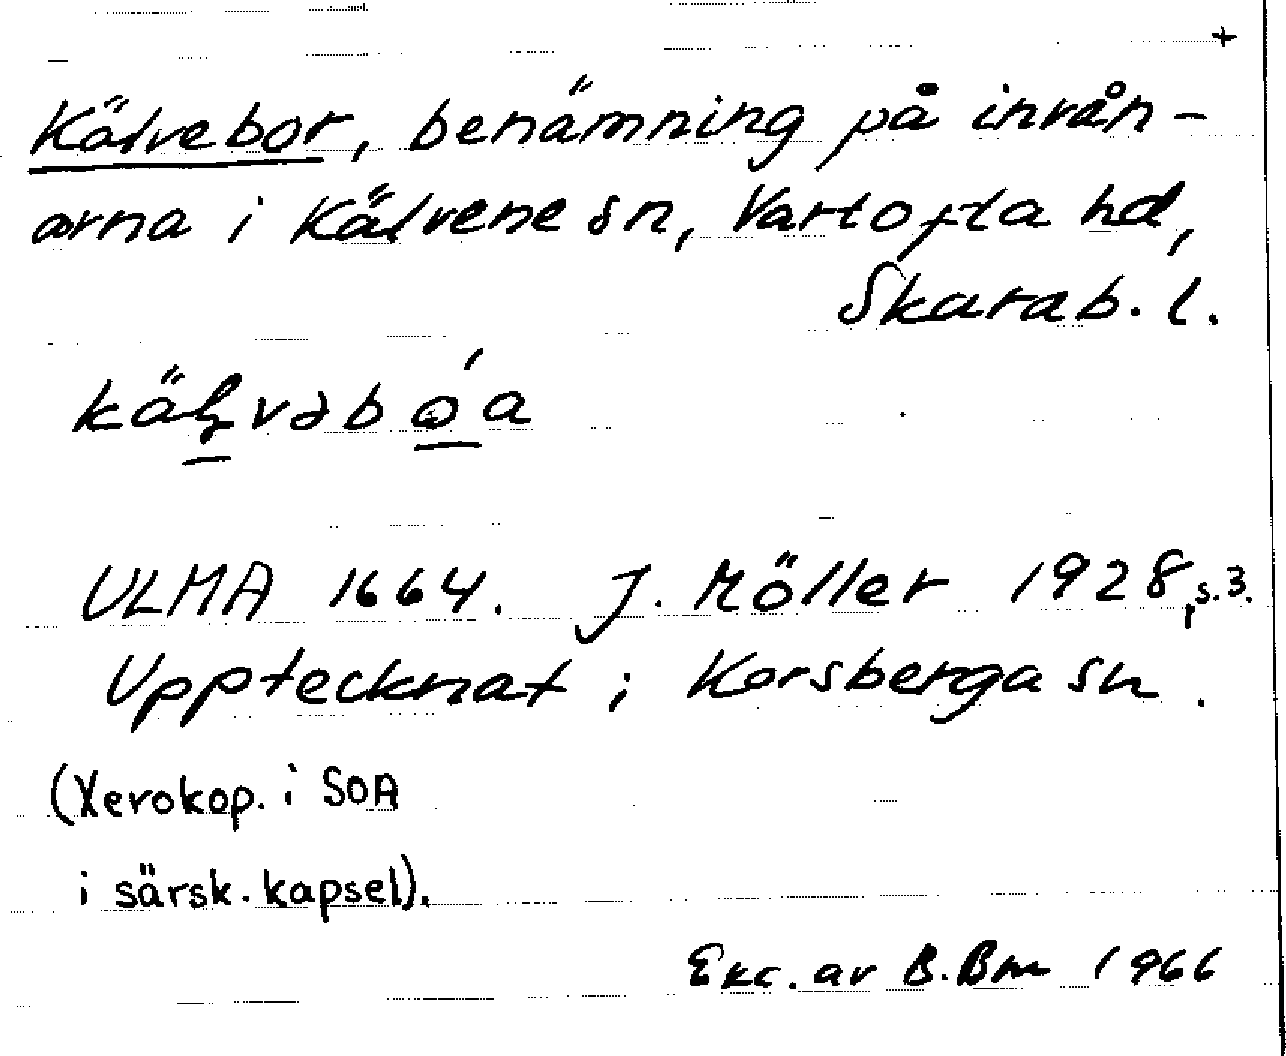 +
Kälvebor, benämning på invån-
arna i Kälvene sn, Vartofta hd,
Skarab. l.
ULMA 1664. J. Möller 1928, s. 3.
Upptecknat i Korsberga sn.
(Xerokop. i SOA
i särsk. kapsel).
Exc. av B. Bm 1966